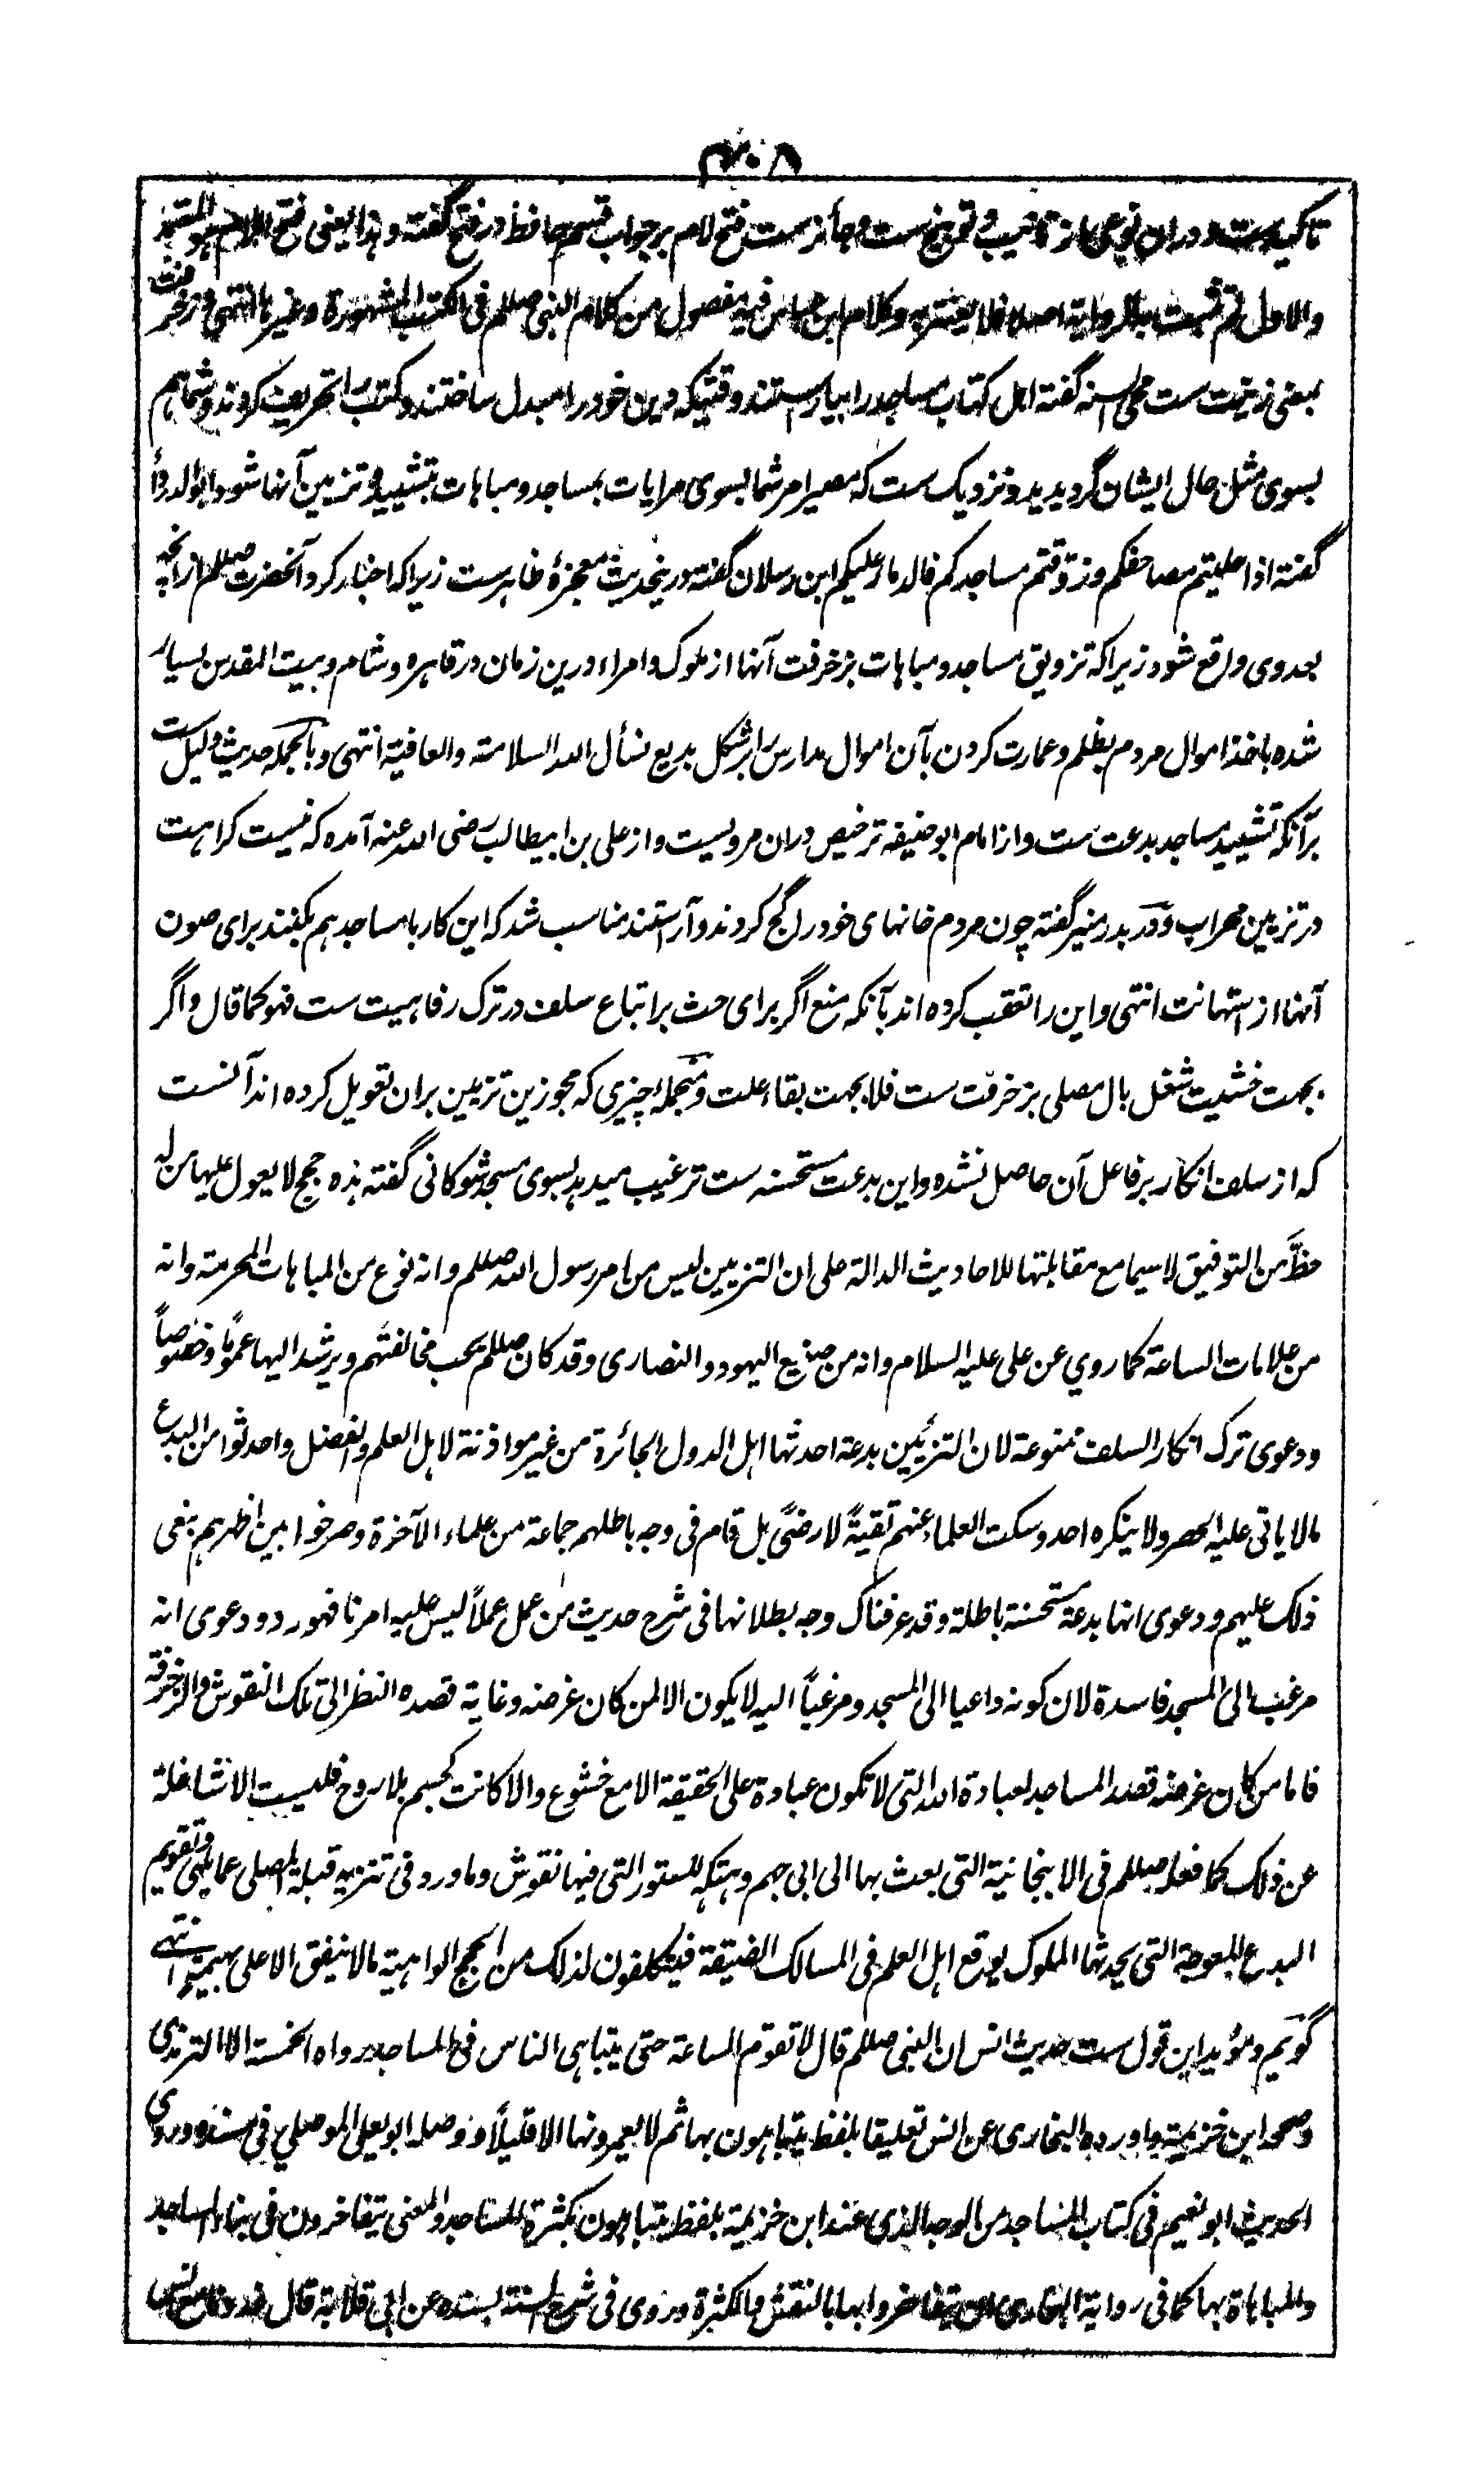 ۴۰۸
تاکیدست و دران نوعی از تانیب و توبیخ ست و جائزست فتح لام بر جواب قسم حافظ در فتح گفته و هذا یعنی فتح اللام هو المعتمد
والاول لم تثبت به الروایة اصلا فلا یغتر به وکلام ابن عباس فیه مفصول من کلام النبی صللم فی الکتب المشهورة وغیرها انتهی و زخرفت
بمعنی زینت ست محی السنه گفته اهل کتاب مساجد را بیاراستند وقتیکه دین خود را مبدل ساختند و کتب را تحریف کردند و شما هم
بسوی مثل حال ایشان گردیدید و نزدیک ست که مصیر امر شما بسوی مرایات بمساجد و مباهات بتشیید و تزیین آنها شود ابوالدرداء
گفته اذا حلیتم مصاحفکم وزوقتم مساجدکم فالدمار علیکم ابن رسلان گفته درینحدیث معجزهٔ ظاهرست زیرا که اخبار کرد آنحضرت صللم از آنچه
بعد وی واقع شود زیرا که تزویق مساجد و مباهات بزخرفت آنها از ملوک و امراء درین زمان در قاهره و شام و بیت المقدس بسیار
شده باخذ اموال مردم بظلم و عمارت کردن بآن اموال مدارس را بر شکل بدیع نسأل الله السلامة والعافیة انتهی و بالجمله حدیث دلیل ست
برآنکه تشیید مساجد بدعت ست و از امام ابو حنیفه ترخیص دران مرویست و از علی بن ابیطالب رضی الله عنه آمده که نیست کراهت
در تزیین محراب و در بدر منیر گفته چون مردم خانهای خود را گچ کردند و آراستند مناسب شد که این کار با مساجد هم بکنند برای صون
آنها از استهانت انتهی و این را تعقب کرده اند بآنکه منع اگر برای حث بر اتباع سلف در ترک رفاهیت ست فهو کما قال و اگر
بجهت خشیت شغل بال مصلی بزخرفت ست فلا بجهت بقاء علت و منجملهٔ چیزی که مجوزین تزیین بران تعویل کرده اند آنست
که از سلف انکار بر فاعل آن حاصل نشده و این بدعت مستحسنه ست ترغیب میدهد بسوی مسجد شوکانی گفته هذه حجج لا یعول علیها من له
حظّ من التوفیق لاسیما مع مقابلتها للاحادیث الدالة علی ان التزیین لیس من امر رسول الله صللم وانه نوع من المباهات المحرمة وانه
من علامات الساعة کما روي عن علی علیه السلام وانه من صنیع الیهود والنصاری وقد کان صللم یحب مخالفتهم ویرشد الیها عمومًا وخصوصاً
ودعوی ترک انکار السلف ممنوعة لان التزیین بدعة احدثها اهل الدول الجائرة من غیر مواذنة لاهل العلم والفضل واحدثوا من البدع
مالا یاتی علیه الحصر ولا ینکره احد وسکت العلماء عنهم تقیةً لا رضیً بل قام فی وجه باطلهم جماعة من علماء الآخرة وصرخوا بین اظهرهم بنعی
ذلک علیهم ودعوی انها بدعة مستحسنة باطلة وقد عرفناک وجه بطلانها فی شرح حدیث من عمل عملاً لیس علیه امرنا فهو رد ودعوی انه
مرغب الی المسجد فاسدة لان کونه داعیا الی المسجد ومرغباً الیه لا یکون الا لمن کان غرضه وغایة قصده النظر الی تلک النقوش والزخرفة
فاما من کان غرضه قصد المساجد لعبادة الله التی لا تکون عبادة علی الحقیقة الا مع خشوع والا کانت کجسم بلا روح فلیست الا شاغلة
عن ذلک کما فعله صللم فی الانبجانیة التی بعث بها الی ابی جهم وهتکه للستور التی فیها نقوش وما ورد فی تنزیه قبلة المصلی عما یلهی وتقویم
البدع المعوجة التی یحدثها الملوک یوقع اهل العلم فی المسالک الضیقة فیتکلفون لذلک من الحجج الواهیة مالا ینفق الا علی بهیمة انتهی
گویم و مؤید این قول ست حدیث انس ان النبی صللم قال لا تقوم الساعة حتی یتباهی الناس فی المساجد رواه الخمسة الا الترمذی
وصححه ابن خزیمة واورده البخاری عن انس تعلیقا بلفظ یتباهون بها ثم لا یعمرونها الا قلیلاً ووصله ابو یعلی الموصلی فی مسنده وروی
الحدیث ابو نعیم فی کتاب المساجد من الوجه الذی عند ابن خزیمة بلفظ یتباهون بکثرة المساجد والمعنی یتفاخرون فی بناء المساجد
والمباهاة بها کما فی روایة البخاری ان یتفاخروا بها بالنقش والکثرة وروی فی شرح السنة بسنده عن ابی قلابة قال غدونا مع انس